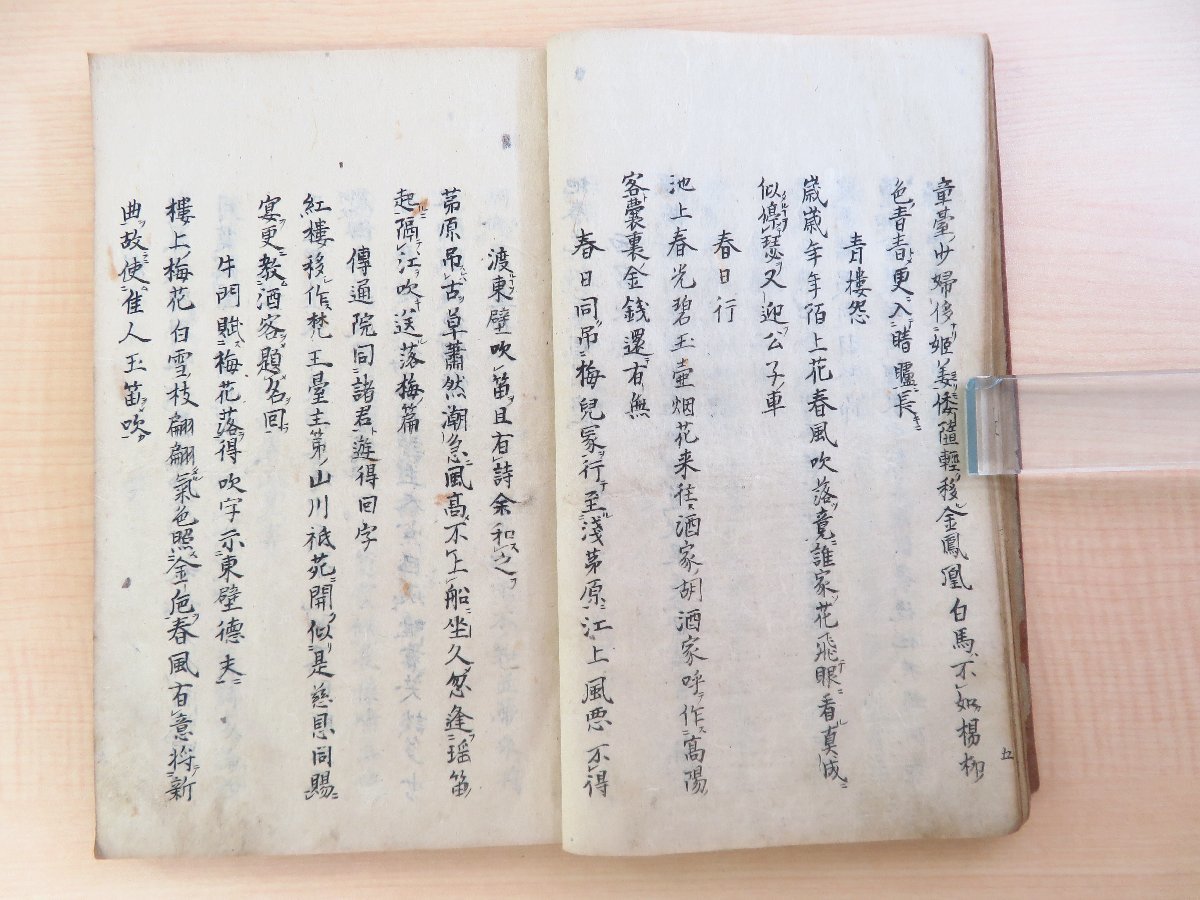 章臺少婦侍姬姜倭隨輕移金鳳凰白馬不如楊柳
色青青更入暗驢長
青樓怨
歲歲年年陌上花春風吹落竟誰家花飛眼看真成
似瑟又迎公子車
春日行
池上春光碧玉壷烟花来往酒家胡酒家呼作高陽
客囊裏金錢還有無
春日同吊梅兒冢行至淺茅原江上風悪不得
渡東壁吹笛且有詩余和之
茅原吊古草蕭然潮急風高不上船坐久忽逢瑶笛
起隔江吹送落梅篇
傳通院同諸君遊得回字
紅樓移作梵王臺主第山川祇苑開似是慈恩同賜
宴更教酒客題名回
牛門賦梅花落得吹字示東壁德夫
樓上梅花白雪枝翩翩氣色照金卮春風有意將新
曲故使佳人玉笛吹
五